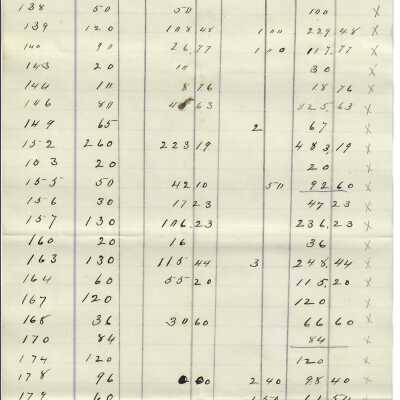 138 50 50 100 x
139 120 108 48 1 00 229 48 x
140 90 26 77 1 00 117.77 x
143 20 10 30 x
144 10 8 76 18 76 x
146 80 63 125 63 x
149 65 2 67 x
152 260 223 19 483 19 x
20 20 x
155 50 42 10 50 92 60 x
156 30 17 23 47 23 x
157 130 106.23 236.23 x
160 20 16 36 x
163 130 115 44 3 248.44 x
164 60 55 20 115.20 x
167 120 120 x
168 36 30 60 66 60 x
170 84 84 x
174 120 120 x
178 96 2 40 98 40 x
179 60 1 50 x